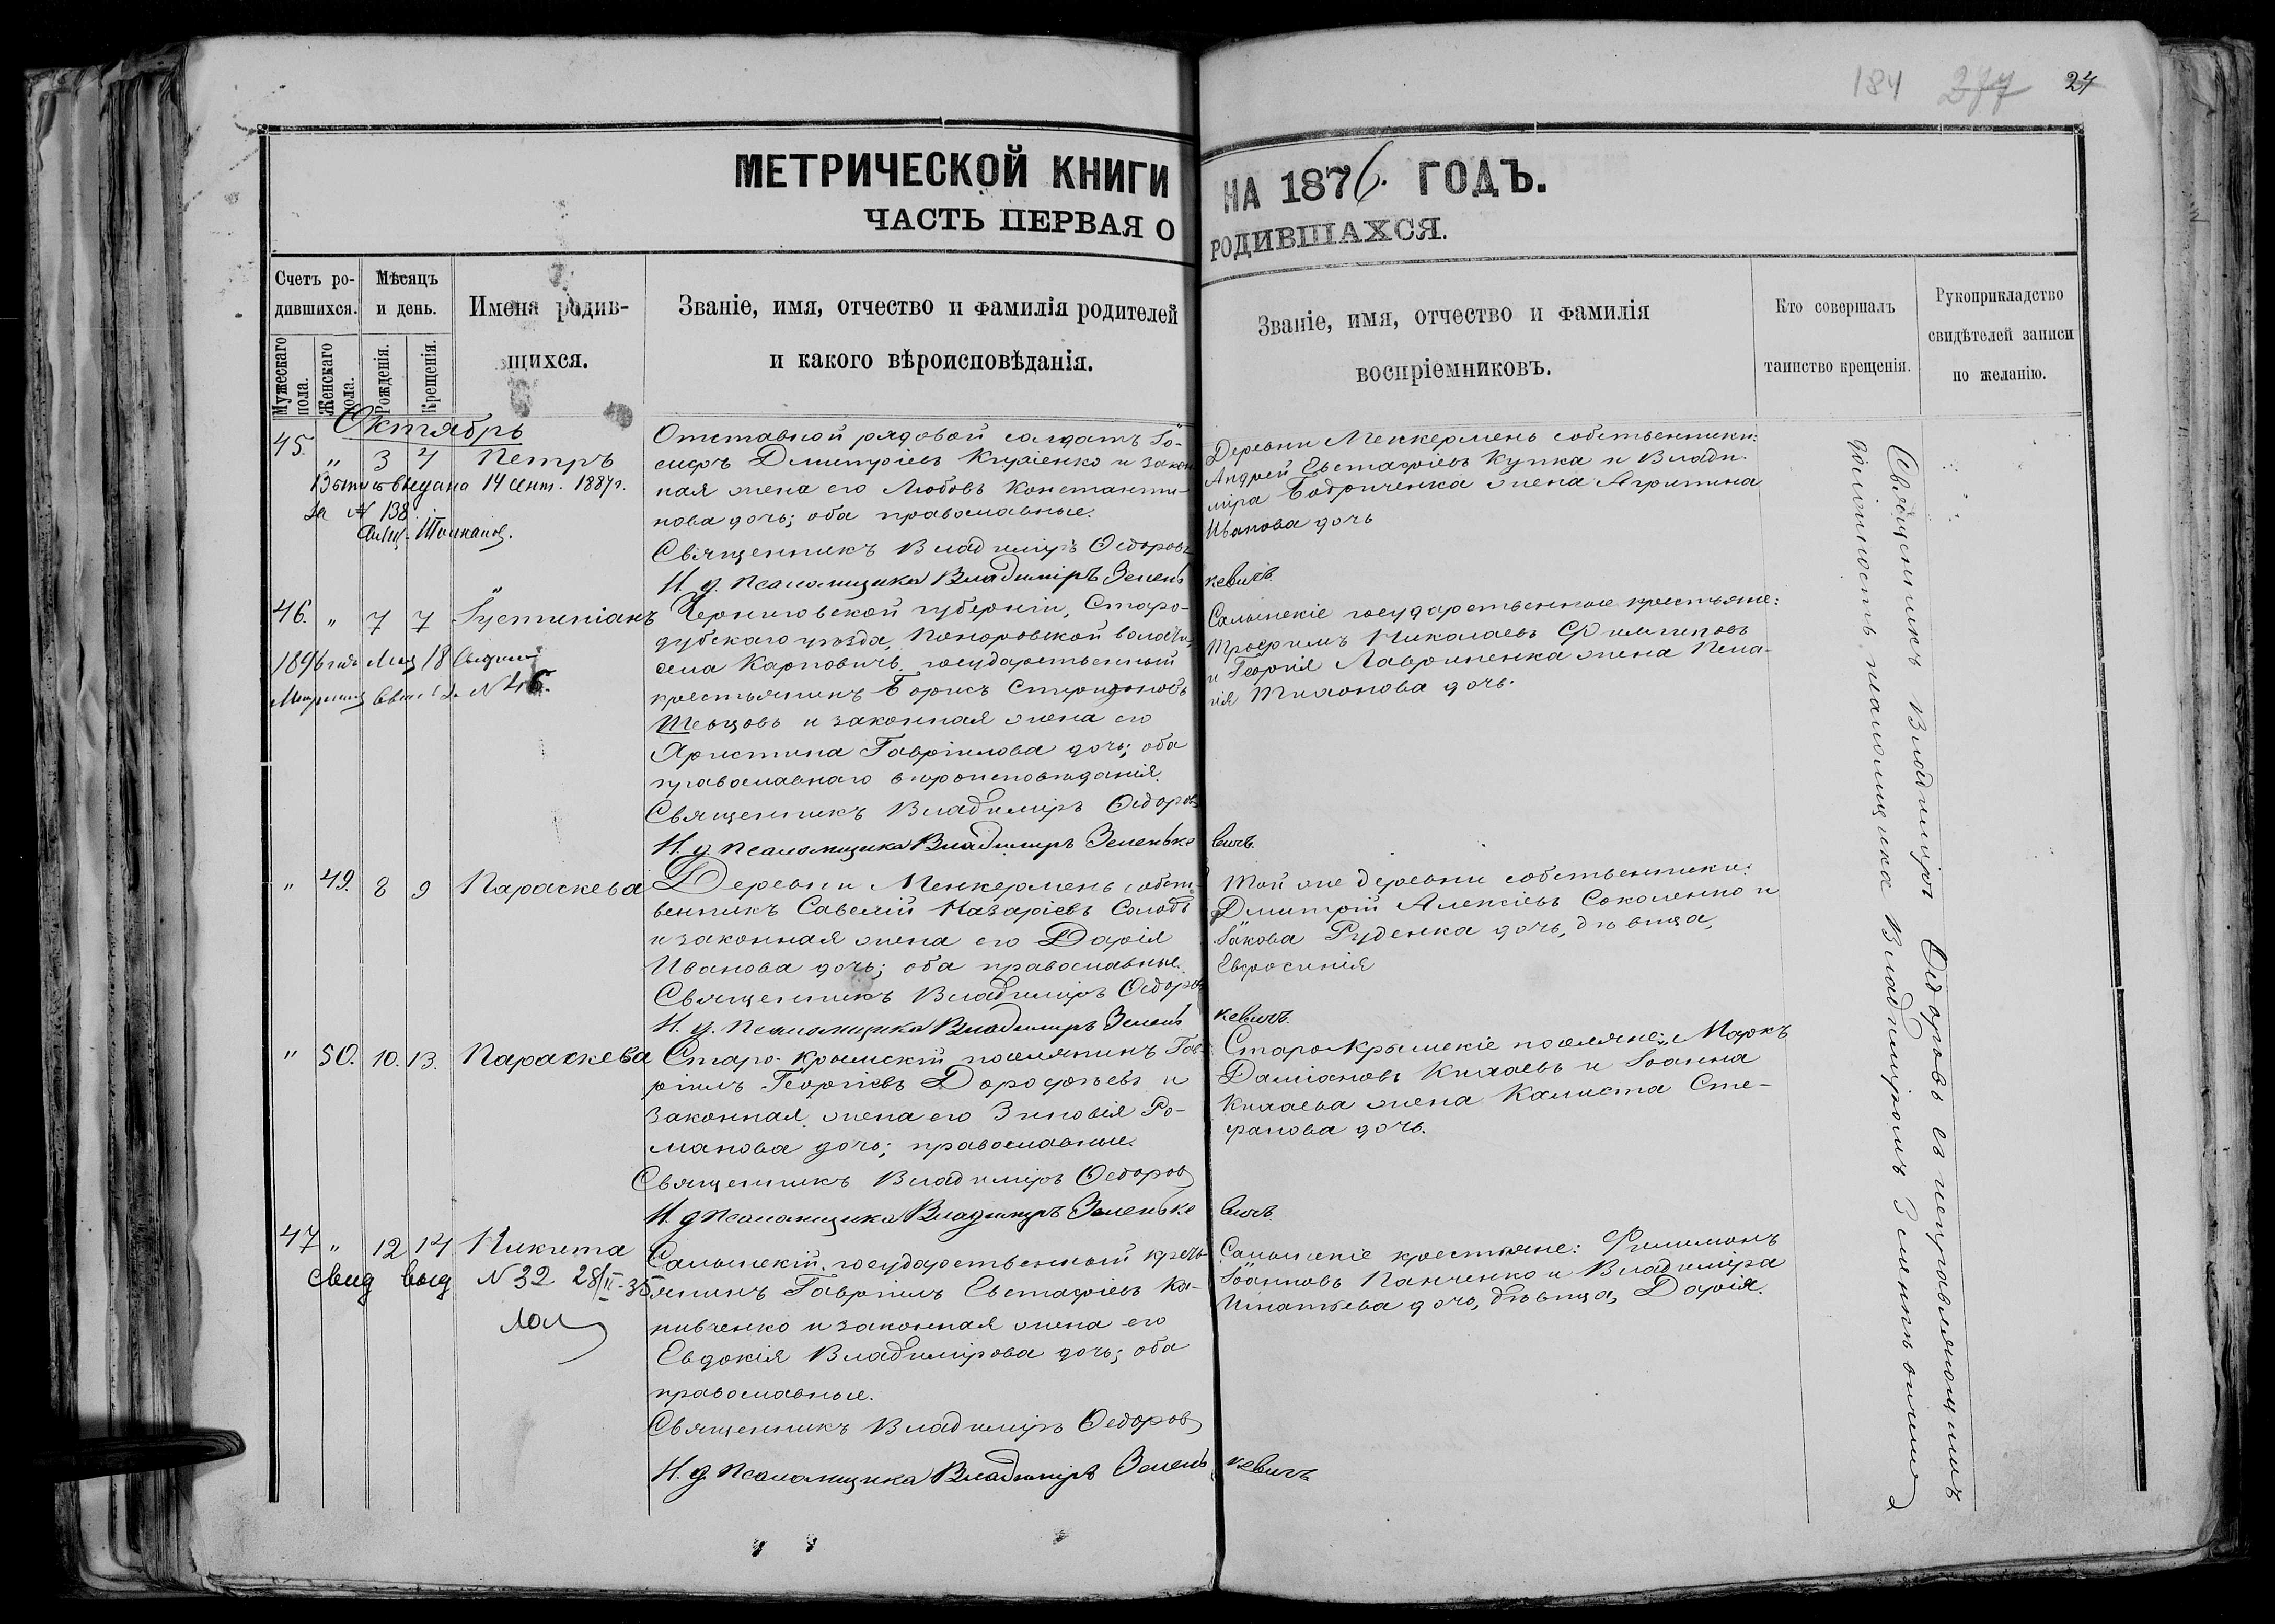 184 277 24
МЕТРИЧЕСКОЙ КНИГИ НА 1876. ГОДЪ.
ЧАСТЬ ПЕРВАЯ О РОДИВШАХСЯ.
Счетъ ро-
дившихся.
Мужескаго пола.
Женскаго пола.
Мѣсяцъ
и день.
Рожденія.
Крещенія.
Имена родив-
шихся.
Званіе, имя, отчество и фамилія родителей
и какого вѣроисповѣданія.
Званіе, имя, отчество и фамилія
воспріемниковъ.
Кто совершалъ
таинство крещенія.
Рукоприкладство
свидѣтелей записи
по желанію.
Октябрь
45. " 3 4 Петръ
выдана 14 Сент. 1887г.
за № 138
Отставной рядовой солдатъ Іо-
сифъ Дмитріевъ и закон
ная жена его Любовь Константи-
нова дочь; оба православные.
Священникъ Владиміръ Ѳедоровъ
И. д. Псаломщика Владиміръ Зеленькевичъ.
Деревни Менкермень собственники:
Андрей Евстафіевъ Купка и Влади-
міра Бодриченка жена Агрипина
Иванова дочь
46. " 7 7 Іустиніанъ
1896 года Мая 18
№ 46.
Черниговской губерніи, Старо-
дубскаго уѣзда, Понуровской волости,
села Карповичъ, государственный
крестьянинъ Борисъ Спиридоновъ
Шевцовъ и законная жена его
Христина Гавріилова дочь; оба
православнаго вѣроисповѣданія.
Священникъ Владиміръ Ѳедоровъ
И. д. Псаломщика Владиміръ Зеленькевичъ.
Салынскіе государственные крестьяне:
Трофимъ Николаевъ Филиповъ
и Георгія Лавриненка жена Пела-
гія Тихонова дочь.
" 49. 8 9 Параскева
Деревни Менкермень собст-
венникъ Савелій Назаріевъ Солодъ
и законная жена его Дарія
Иванова дочь; оба православные.
Священникъ Владиміръ Ѳедоровъ
И. д. Псаломщика Владиміръ Зеленькевичъ.
Той же деревни собственники:
Дмитрій Алексіевъ Соколенко и
Іакова Руденка дочь, дѣвица,
Евфросинія
" 50. 10. 13. Параскева
Старо-Крымскій поселянинъ Гав-
ріилъ Георгіевъ Дорофѣевъ и
законная жена его Зиновія Ро-
манова дочь; православные.
Священникъ Владиміръ Ѳедоровъ
И. д. Псаломщика Владиміръ Зеленькевичъ.
Старо-Крымскіе поселяне: Маркъ
Даміановъ Кихаевъ и Іоанна
Кихаева жена Калиста Сте-
фанова дочь.
47 " 12 14 Никита
Свид выд № 32 28/II-35
Салынскій государственный кресть-
янинъ Гавріилъ Евстафіевъ Ка-
нивченко и законная жена его
Евдокія Владимірова дочь; оба
православные.
Священникъ Владиміръ Ѳедоровъ
И. д. Псаломщика Владиміръ Зеленькевичъ
Салынскіе крестьяне: Филимонъ
Іоанновъ Панченко и Владиміра
Игнатьева дочь, дѣвица, Дарія.
Священникъ Владиміръ Ѳедоровъ съ исправляющимъ
должность псаломщика Владиміромъ Зеленькевичемъ